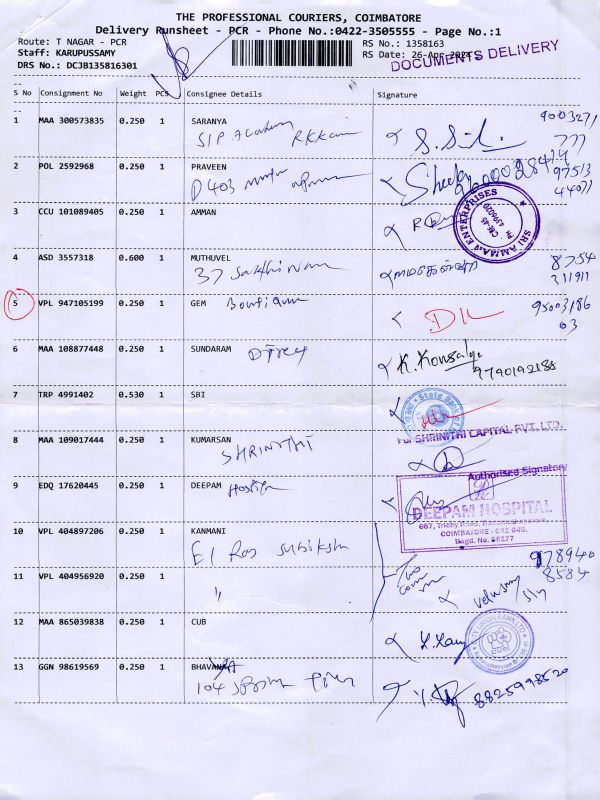 THE PROFESSIONAL COURIERS, COIMBATORE
Delivery Runsheet - PCR - Phone No.:0422-3505555 - Page No.:1
Route: T NAGAR - PCR
RS No.: 1358163
Staff: KARUPUSSAMY
RS Date: 26-Apr-2024
DOCUMENTS DELIVERY
DRS No.: DCJB135816301
S No Consignment No Weight PCS Consignee Details Signature
1 MAA 300573835 0.250 1 SARANYA
SIP Academy
9003271
777
2 POL 2592968 0.250 1 PRAVEEN
D 403
97513
44071
3 CCU 101089405 0.250 1 AMMAN
SRI AMMAN ENTERPRISES
4 ASD 3557318 0.600 1 MUTHUVEL
37
8754
311911
5 VPL 947105199 0.250 1 GEM
Boutique
95003186
03
6 MAA 108877448 0.250 1 SUNDARAM
K. Kousalya
9790192188
7 TRP 4991402 0.530 1 SBI
State Bank of
For SHRINITHI CAPITAL PVT. LTD.
8 MAA 109017444 0.250 1 KUMARSAN
SHRINITHI
Authorised Signatory
9 EDQ 17620445 0.250 1 DEEPAM
Hospital
DEEPAM HOSPITAL
667, Trichy Road, Ramanathapuram,
COIMBATORE - 641 045.
Regd. No. 96177
10 VPL 404897206 0.250 1 KANMANI
978940
8584
11 VPL 404956920 0.250 1
"
12 MAA 865039838 0.250 1 CUB
13 GGN 98619569 0.250 1 BHAVANAA
104
8825998520